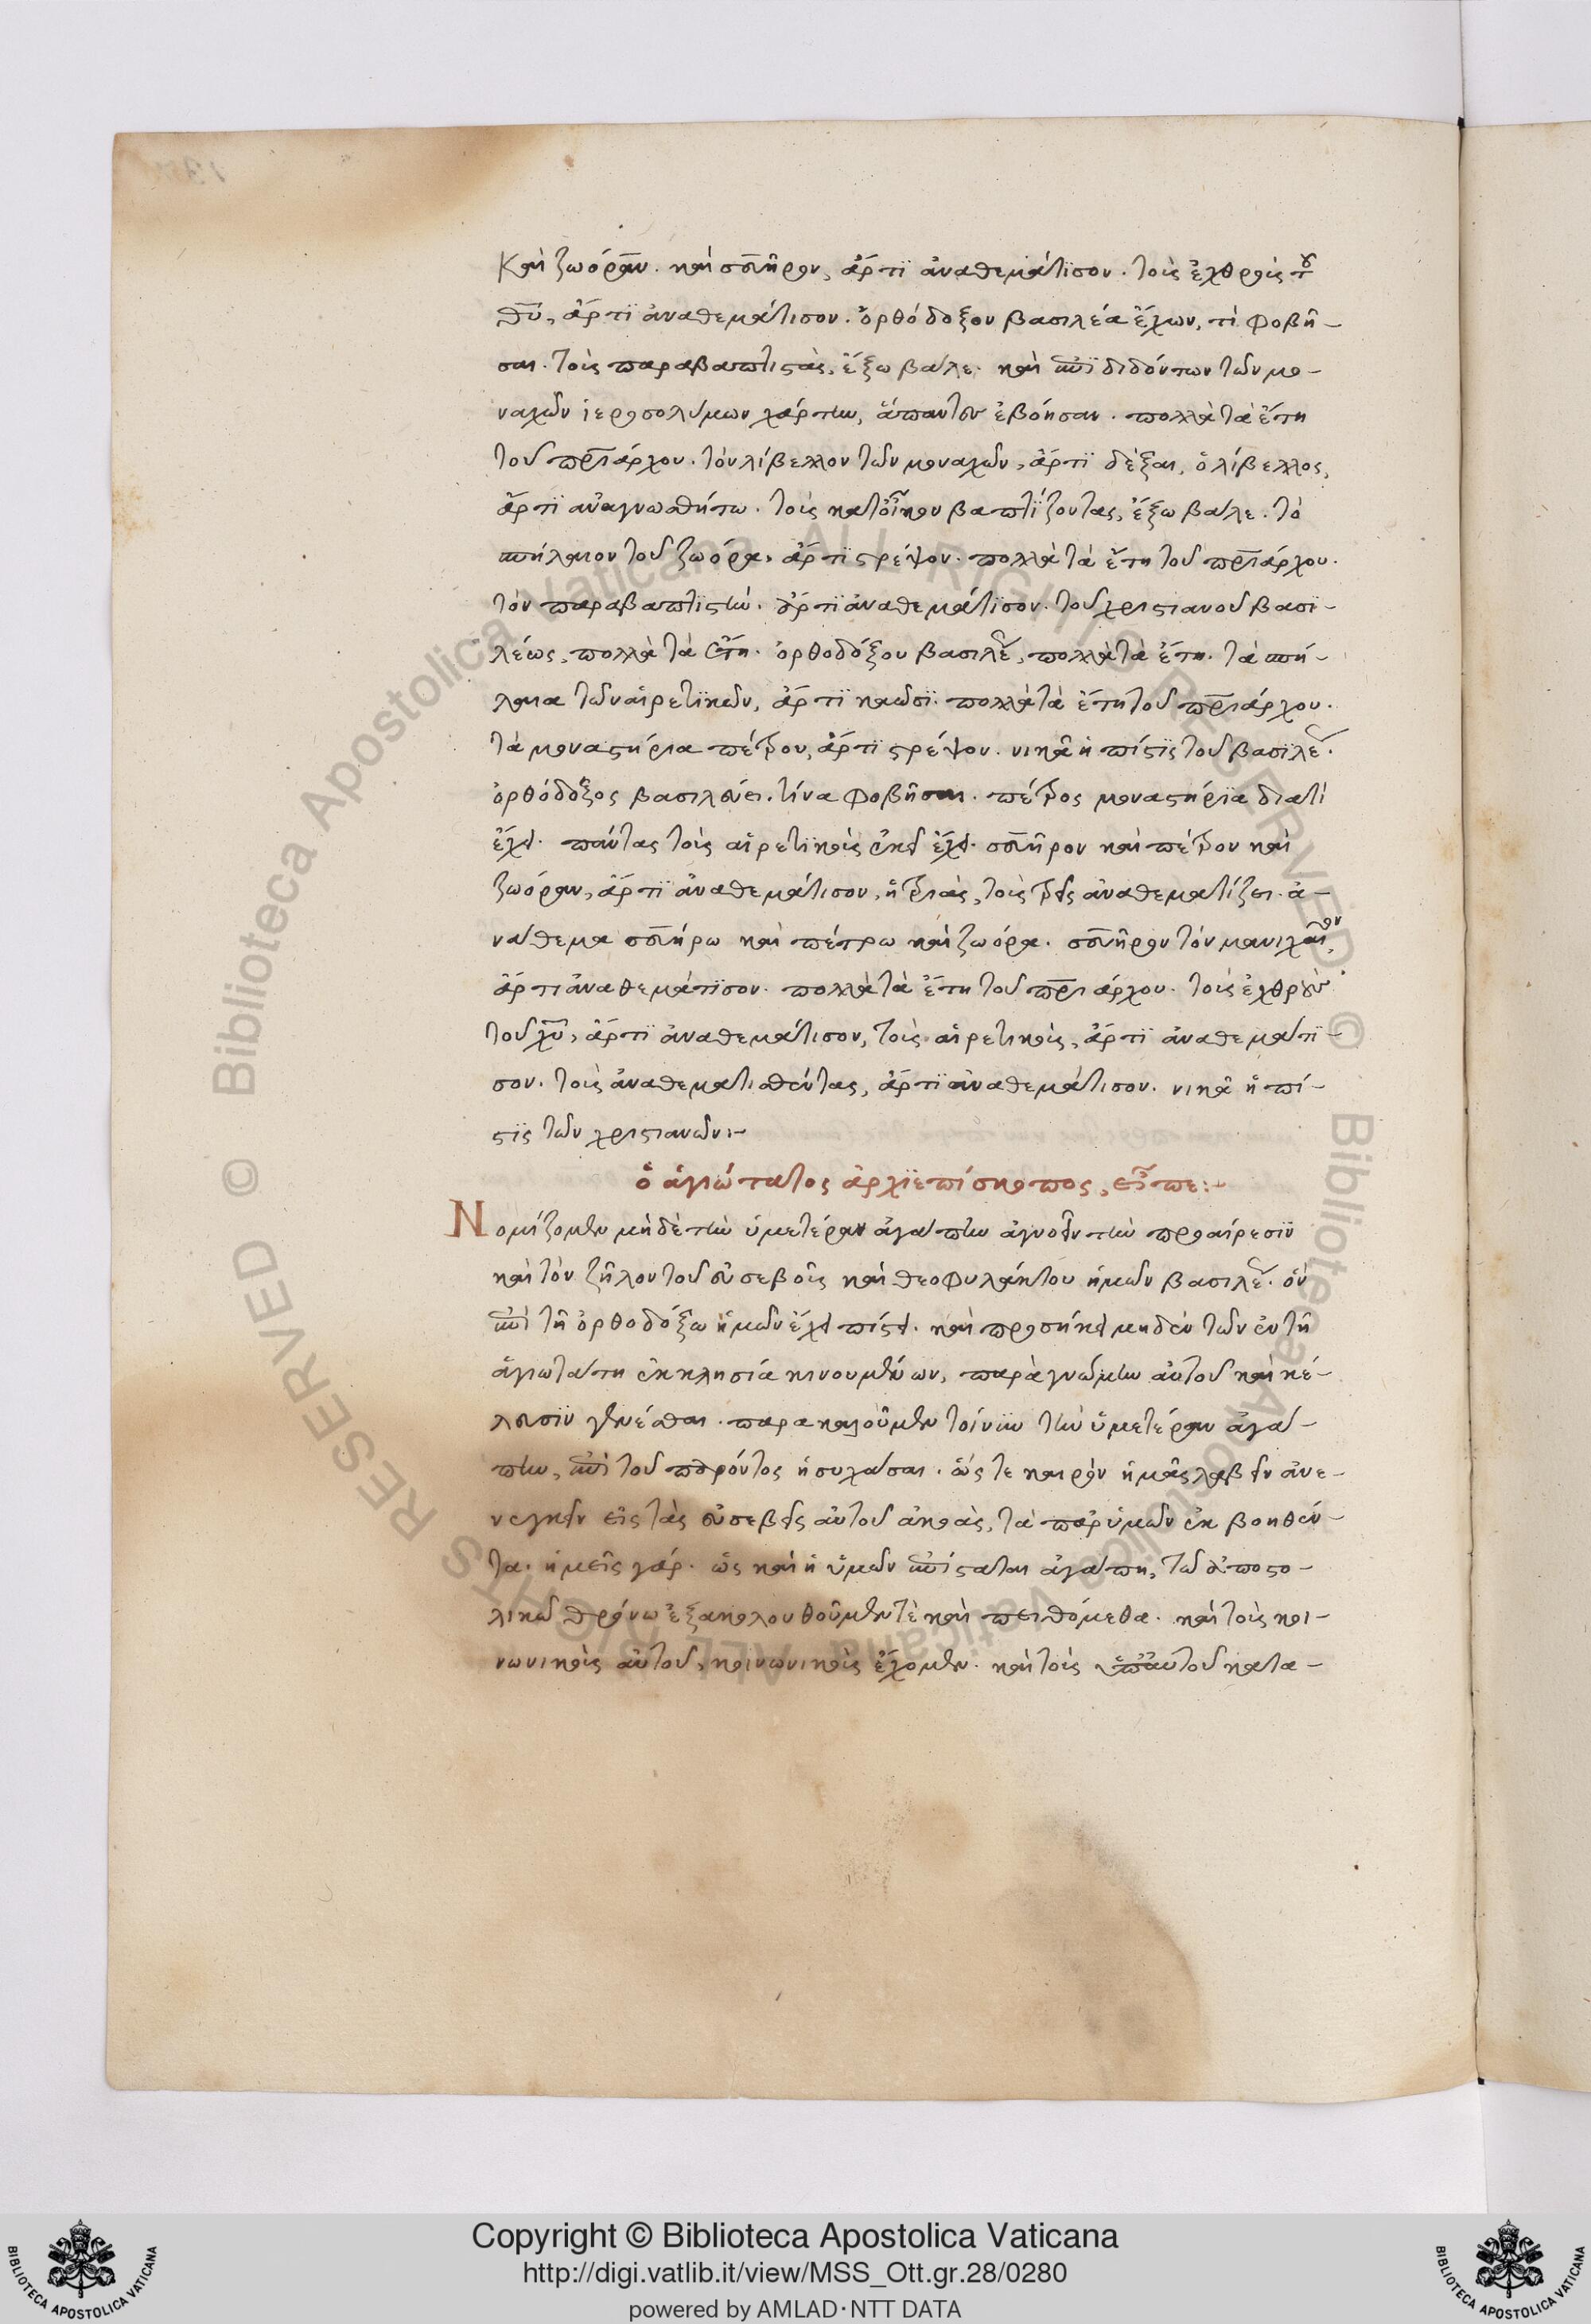 καὶ ζωόραν. καὶ σευῆρον, ἄρτϊ ἀναθεμάτϊσον. τοὺς ἐχθροὺς τοῦ
θ̅υ̅, ἄρτϊ ἀναθεμάτισον. ὀρθόδοξον βασιλέα ἔχων, τί φοβῆ-
σαι. τοὺς παραβαπτιστὰς, ἔξω βάλε. καὶ ἐπϊδιδόντων τῶν μο-
ναχῶν ἱεροσολύμων χάρτην, ἅπαντες ἐβόησαν. πολλὰ τὰ ἔτη
τοῦ π̅ρ̅ιάρχου. τὸν λίβελλον τῶν μοναχῶν, ἄρτϊ δέξαι, ὁ λίβελλος,
ἄρτϊ ἀναγνωσθήτω. τοὺς κατοῖκον βαπτϊζοντας, ἔξω βάλε. τὸ
σπήλαιον τοῦ ζωόρα, ἄρτϊ στρέψον. πολλὰ τὰ ἔτη τοῦ π̅ρ̅ιάρχου.
τὸν παραβαπτϊστὴν. ἄρτϊ ἀναθεμάτϊσον. τοῦ χριστιανοῦ βασϊ-
λέως, πολλὰ τὰ ἔτη. ὀρθοδόξου βασιλέως, πολλὰ τὰ ἔτη. τὰ σπή-
λαια τῶν αἱρετϊκῶν, ἄρτϊ καῶσϊ. πολλὰ τὰ ἔτη τοῦ π̅ρ̅ιάρχου.
τὰ μοναστήρια πέτρου, ἄρτϊ στρέψον. νικᾶ ἡ πίστϊς τοῦ βασϊλέως.
ὀρθόδοξος βασιλεύει. τίνα φοβῆσαι. πέτρος μοναστήρϊα διατί
ἔχει. πάντας τοὺς αἱρετϊκοὺς ἐκεῖ ἔχει. σευῆρον καὶ πέτρον καὶ
ζωόραν, ἄρτϊ ἀναθεμάτισον, ἡ τριὰς, τοὺς τρεῖς ἀναθεματίζει. ἀ-
νάθεμα σευήρω καὶ πέτρω καὶ ζωόρα. σευῆρον τὸν μανιχαῖον,
ἄρτι ἀναθεμάτϊσον. πολλὰ τὰ ἔτη τοῦ π̅ρ̅ιάρχου. τοὺς ἐχθροὺς
τοῦ χ̅υ̅, ἄρτϊ ἀναθεμάτισον, τοὺς αἱρετικοὺς, ἄρτϊ ἀναθεμάτϊ-
σον. τοὺς ἀναθεματισθέντας, ἄρτϊ ἀναθεμάτισον. νικᾶ ἡ πί-
στϊς τῶν χριστιανῶν:-
ὁ ἁγιώτατος ἀρχϊεπίσκοπος, εἶπε:-
Νομίζομεν μὴδὲ τὴν ὑμετέραν ἀγάπην ἀγνοεῖν τὴν προαίρεσϊν
καὶ τὸν ζῆλον τοῦ εὐσεβοῦς καὶ θεοφυλάκτου ἡμῶν βασιλέως. ὃν
ἐπὶ τῆ ὀρθοδόξω ἡμῶν ἔχει πίστει. καὶ προσήκει μηδὲν τῶν ἐν τῆ
ἁγιωτάτη ἐκκλησία κινουμένων, παρὰ γνώμην αὐτοῦ καὶ κέ-
λευσϊν γενέσθαι. παρακαλοῦμεν τοίνυν τὴν ὑμετέραν ἀγά-
πην, ἐπὶ τοῦ παρόντος ἡσυχάσαι. ὥστε καιρὸν ἡμᾶς λαβεῖν ἀνε-
νεγκεῖν εἰς τὰς εὐσεβεῖς αὐτοῦ ἀκοὰς, τὰ παρ ὑμῶν ἐκβοηθέν-
τα. ἡμεῖς γάρ. ὡς καὶ ἡ ὑμῶν ἐπίσταται ἀγάπη, τῶ ἀποστο-
λικῶ θρόνω ἐξακολουθοῦμεν τὲ καὶ πειθόμεθα. καὶ τοὺς κοι-
νωνικοὺς αὐτοῦ, κοινωνικοὺς ἔχομεν. καὶ τοὺς ὑπ αὐτοῦ κατα-
Copyright © Biblioteca Apostolica Vaticana
http://digi.vatlib.it/view/MSS_Ott.gr.28/0280
powered by AMLAD·NTT DATA